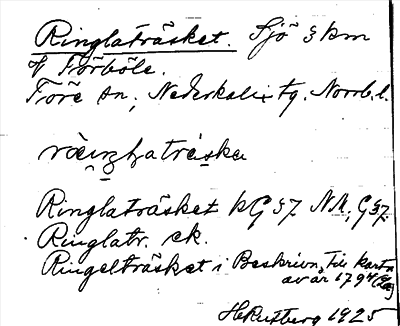 Ringlaträsket. Sjö 3 km
Törböle.
Töre sn, Nederkalix tg. Norrb. l.
Ringlaträsket kG 37 NN, G37.
Ringlatr. ek.
Ringelträsket i Beskrivn. till karta
av år 1794
1925